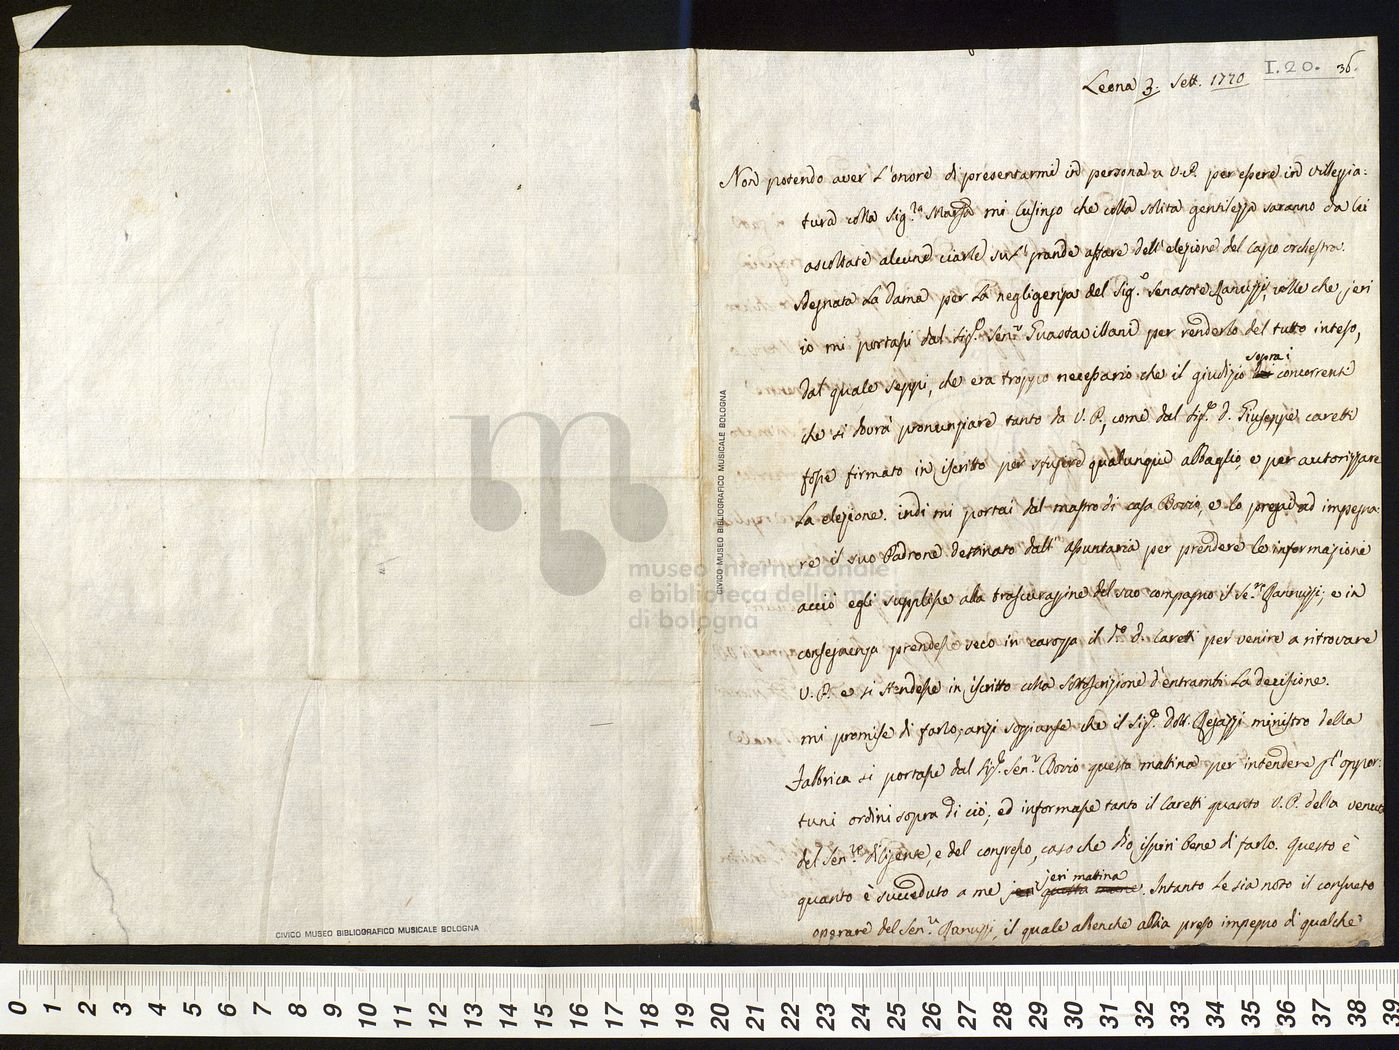 I.20. 36.
Leona 3. Sett. 1770
Non potendo aver l'onore di presentarmi in persona a V.P. per essere in villeggia:
tura colla Sig.ra Marsa mi lusingo che colla solita gentilezza saranno da lei
ascoltate alcune ciarle sul grande affare dell'elezione del Capo orchestra.
Sdegnata la Dama per la negligenza del Sig.e Senatore Ranuzzi, volle che jeri
io mi portassi dal Sig.e Sen.re Guastavillani per renderlo del tutto inteso,
dal quale seppi, che era troppo necessario che il giudizio sopra i concorrenti
che si dovrà pronunziare tanto da V.P., come dal Sig.e D. Giuseppe Caretti
fosse firmato in iscritto per sfuggire qualunque abbaglio, e per autorizzare
la elezione. indi mi portai dal mastro di casa Bovio, e lo pregai ad impegna:
re il suo Padrone destinato dall' Assuntaria per prendere le informazioni
acciò egli supplisse alla trascuraggine del suo compagno il Se.re Rannuzzi; e in
conseguenza prendesse seco in carozza il S.e D. Caretti per venire a ritrovare
V.P. e si stendesse in iscritto colla sottoscrizione d'entrambi la decisione.
mi promise di farlo, anzi soggiunse che il Sig.e Dott. Regazzi ministro della
Fabbrica si portasse dal Sig.e Sen.re Bovio questa mattina per intendere gl'oppor:
tuni ordini sopra di ciò; ed informasse tanto il Caretti quanto V.P. della venuta
del Sen.re diligente, e del congresso, caso che Dio ispiri bene di farlo. Questo è
quanto è succeduto a me jeri mattina. Intanto le sia noto il consueto
operare del Sen.re Ranuzzi, il quale abenche abbia preso impegno di qualche
CIVICO MUSEO BIBLIOGRAFICO MUSICALE BOLOGNA
CIVICO MUSEO BIBLIOGRAFICO MUSICALE BOLOGNA
museo internazionale
e biblioteca della musica
di bologna
0 1 2 3 4 5 6 7 8 9 10 11 12 13 14 15 16 17 18 19 20 21 22 23 24 25 26 27 28 29 30 31 32 33 34 35 36 37 38 39